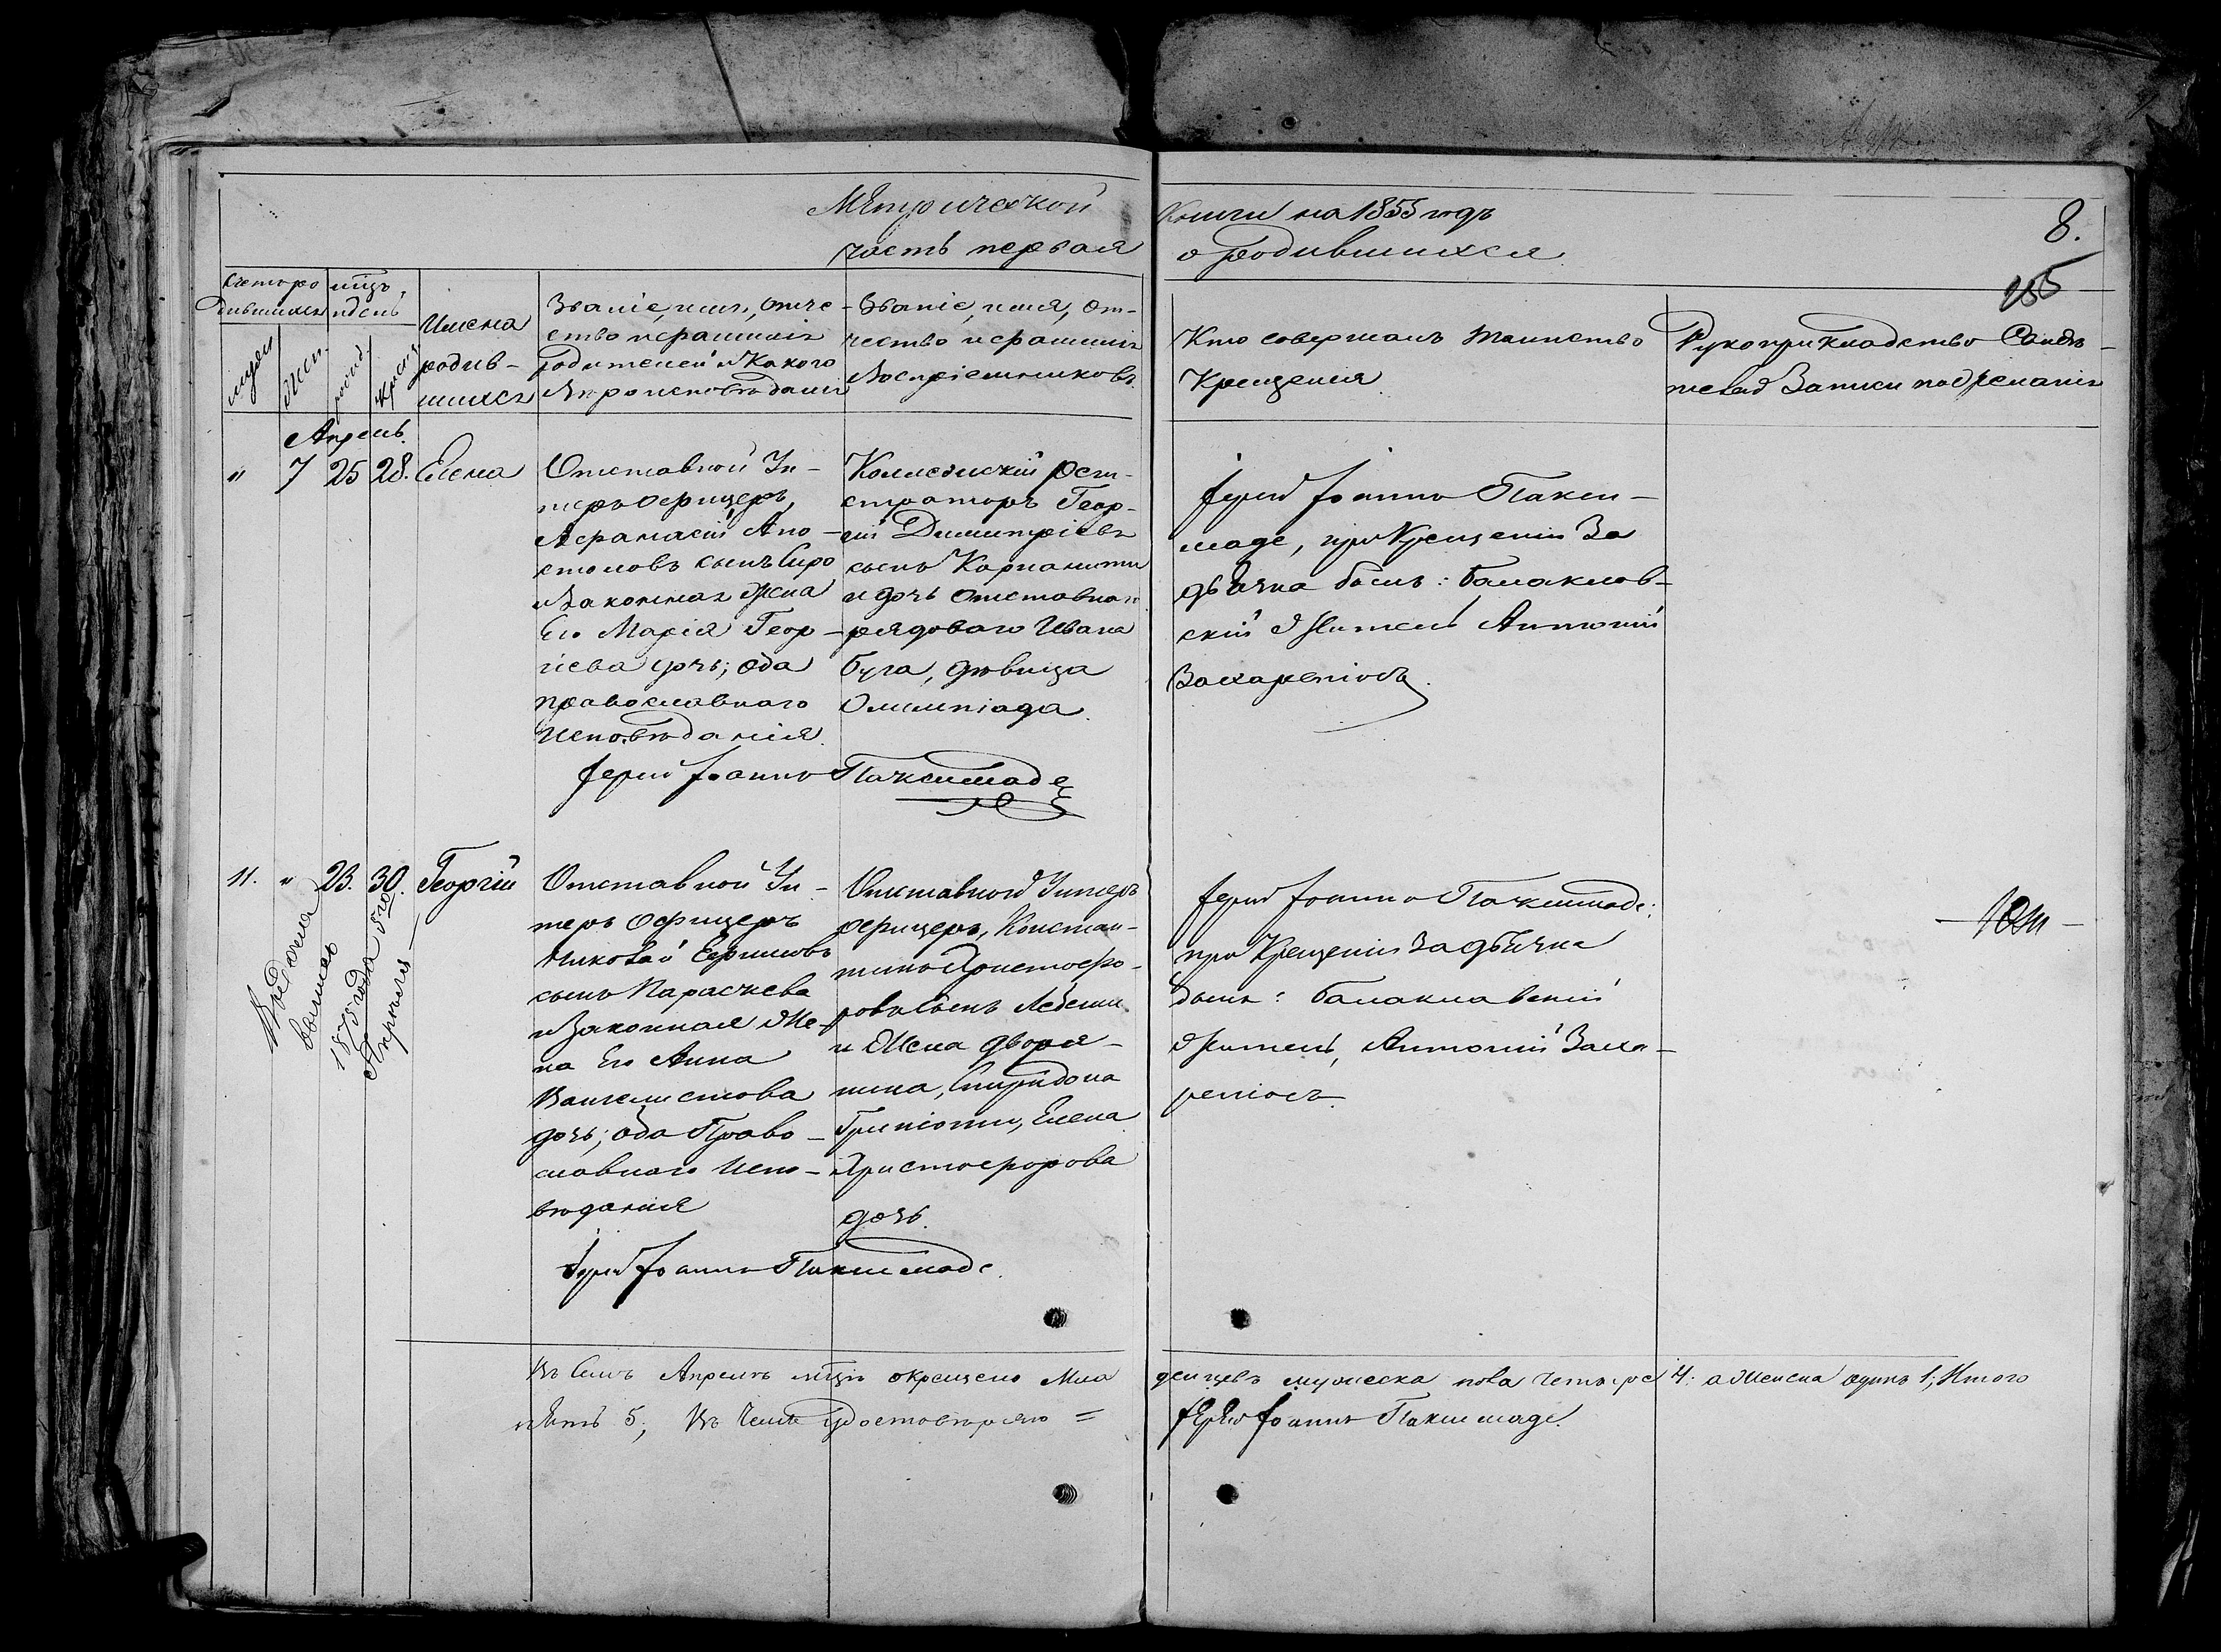 Метрической Книги на 1853 годъ
часть первая о родившихся
8.
Счетъ родившихся
мѣсц. и день
мужеск
женск.
рожд.
крещ.
Имена
родив-
шихся
Званіе, имя, отче-
ство и фамилія
родителей и какого
вѣроисповѣданія
Званіе, имя, от-
чество и фамилія
воспріемниковъ
Кто совершалъ таинство
Крещенія
Рукоприкладство Свидѣ-
телей Записи по желанію
Апрель.
" 7 25 28. Елена
Отставной Ун-
теръ офицеръ,
Афанасій Апо-
столовъ сынъ Сиро
и Законная Жена
Его Марія Геор-
гіева дочь; оба
православнаго
Исповѣданія.
Коллежскій Реги-
страторъ Геор-
гій Димитріевъ
сынъ
и дочь отставнаго
рядоваго Ивана
Буга, дѣвица
Олимпіада.
Іерей Іоаннъ Пакси-
маде, при Крещеніи За
дьячка былъ: балаклав-
скій Житель Антоній
Захареніосъ.
Іерей Іоаннъ Паксимаде
11. " 23. 30. Георгій
Отставной Ун-
теръ Офицеръ
Николай Ефимовъ
сынъ Парасчева
и Законная Же-
на Его Анна
Вангелистова
дочь; оба Право-
славнаго Испо-
вѣданія
Отставной Унтеръ
офицеръ, Констан-
тинъ Христофо-
ровъ сынъ
и Жена дворя-
нина, Спиридона
Грипіоти, Елена
Христофорова
дочь.
Іерей Іоаннъ Паксимаде:
при Крещеніи За дьячка
былъ: балаклавскій
Житель, Антоній Заха-
реніосъ.
выписъ
1875 года
Апрѣля
Іерей Іоаннъ Паксимаде.
Въ Семъ Апрелѣ мѣсцѣ окрещено Мла денцевъ мужеска пола четыре 4: а Женска одинъ 1; Итого
пять 5; Въ Чемъ Удостовѣряю = Іерей Іоаннъ Паксимаде.